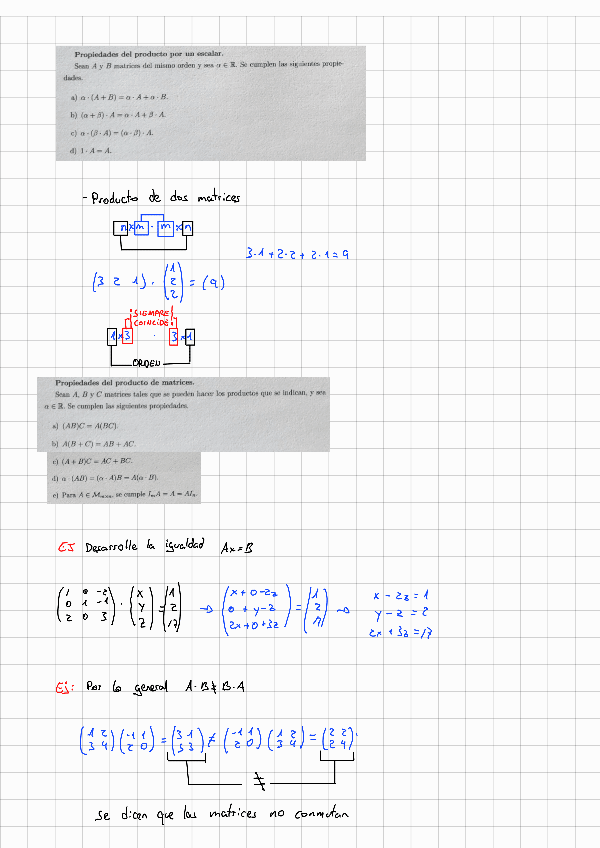 Propiedades del producto por un escalar.
Sean A y B matrices del mismo orden y sea α ∈ ℝ. Se cumplen las siguientes propie-
dades.
a) α · (A + B) = α · A + α · B.
b) (α + β) · A = α · A + β · A.
c) α · (β · A) = (α · β) · A.
d) 1 · A = A.
- Producto de dos matrices
n x m · m x n
3·1 + 2·2 + 2·1 = 9
(3 2 1) · (1 2 2) = (9)
¡SIEMPRE
COINCIDE!
1 x 3 · 3 x 1
ORDEN
Propiedades del producto de matrices.
Sean A, B y C matrices tales que se pueden hacer los productos que se indican, y sea
α ∈ ℝ. Se cumplen las siguientes propiedades.
a) (AB)C = A(BC).
b) A(B + C) = AB + AC.
c) (A + B)C = AC + BC.
d) α · (AB) = (α · A)B = A(α · B).
e) Para A ∈ Mₘₓₙ, se cumple IₘA = A = AIₙ.
EJ Desarrolle la igualdad Ax = B
1 0 -2 x 1 x+0-2z 1 x - 2z = 1
0 1 -1 · y = 2 → 0 + y - z = 2 → y - z = 2
2 0 3 z 17 2x+0+3z 17 2x + 3z = 17
Ej: Por lo general A·B ≠ B·A
1 2 -1 1 3 1 -1 1 1 2 2 2
3 4 2 0 = 5 3 ≠ 2 0 3 4 = 2 4
≠
se dicen que las matrices no conmutan